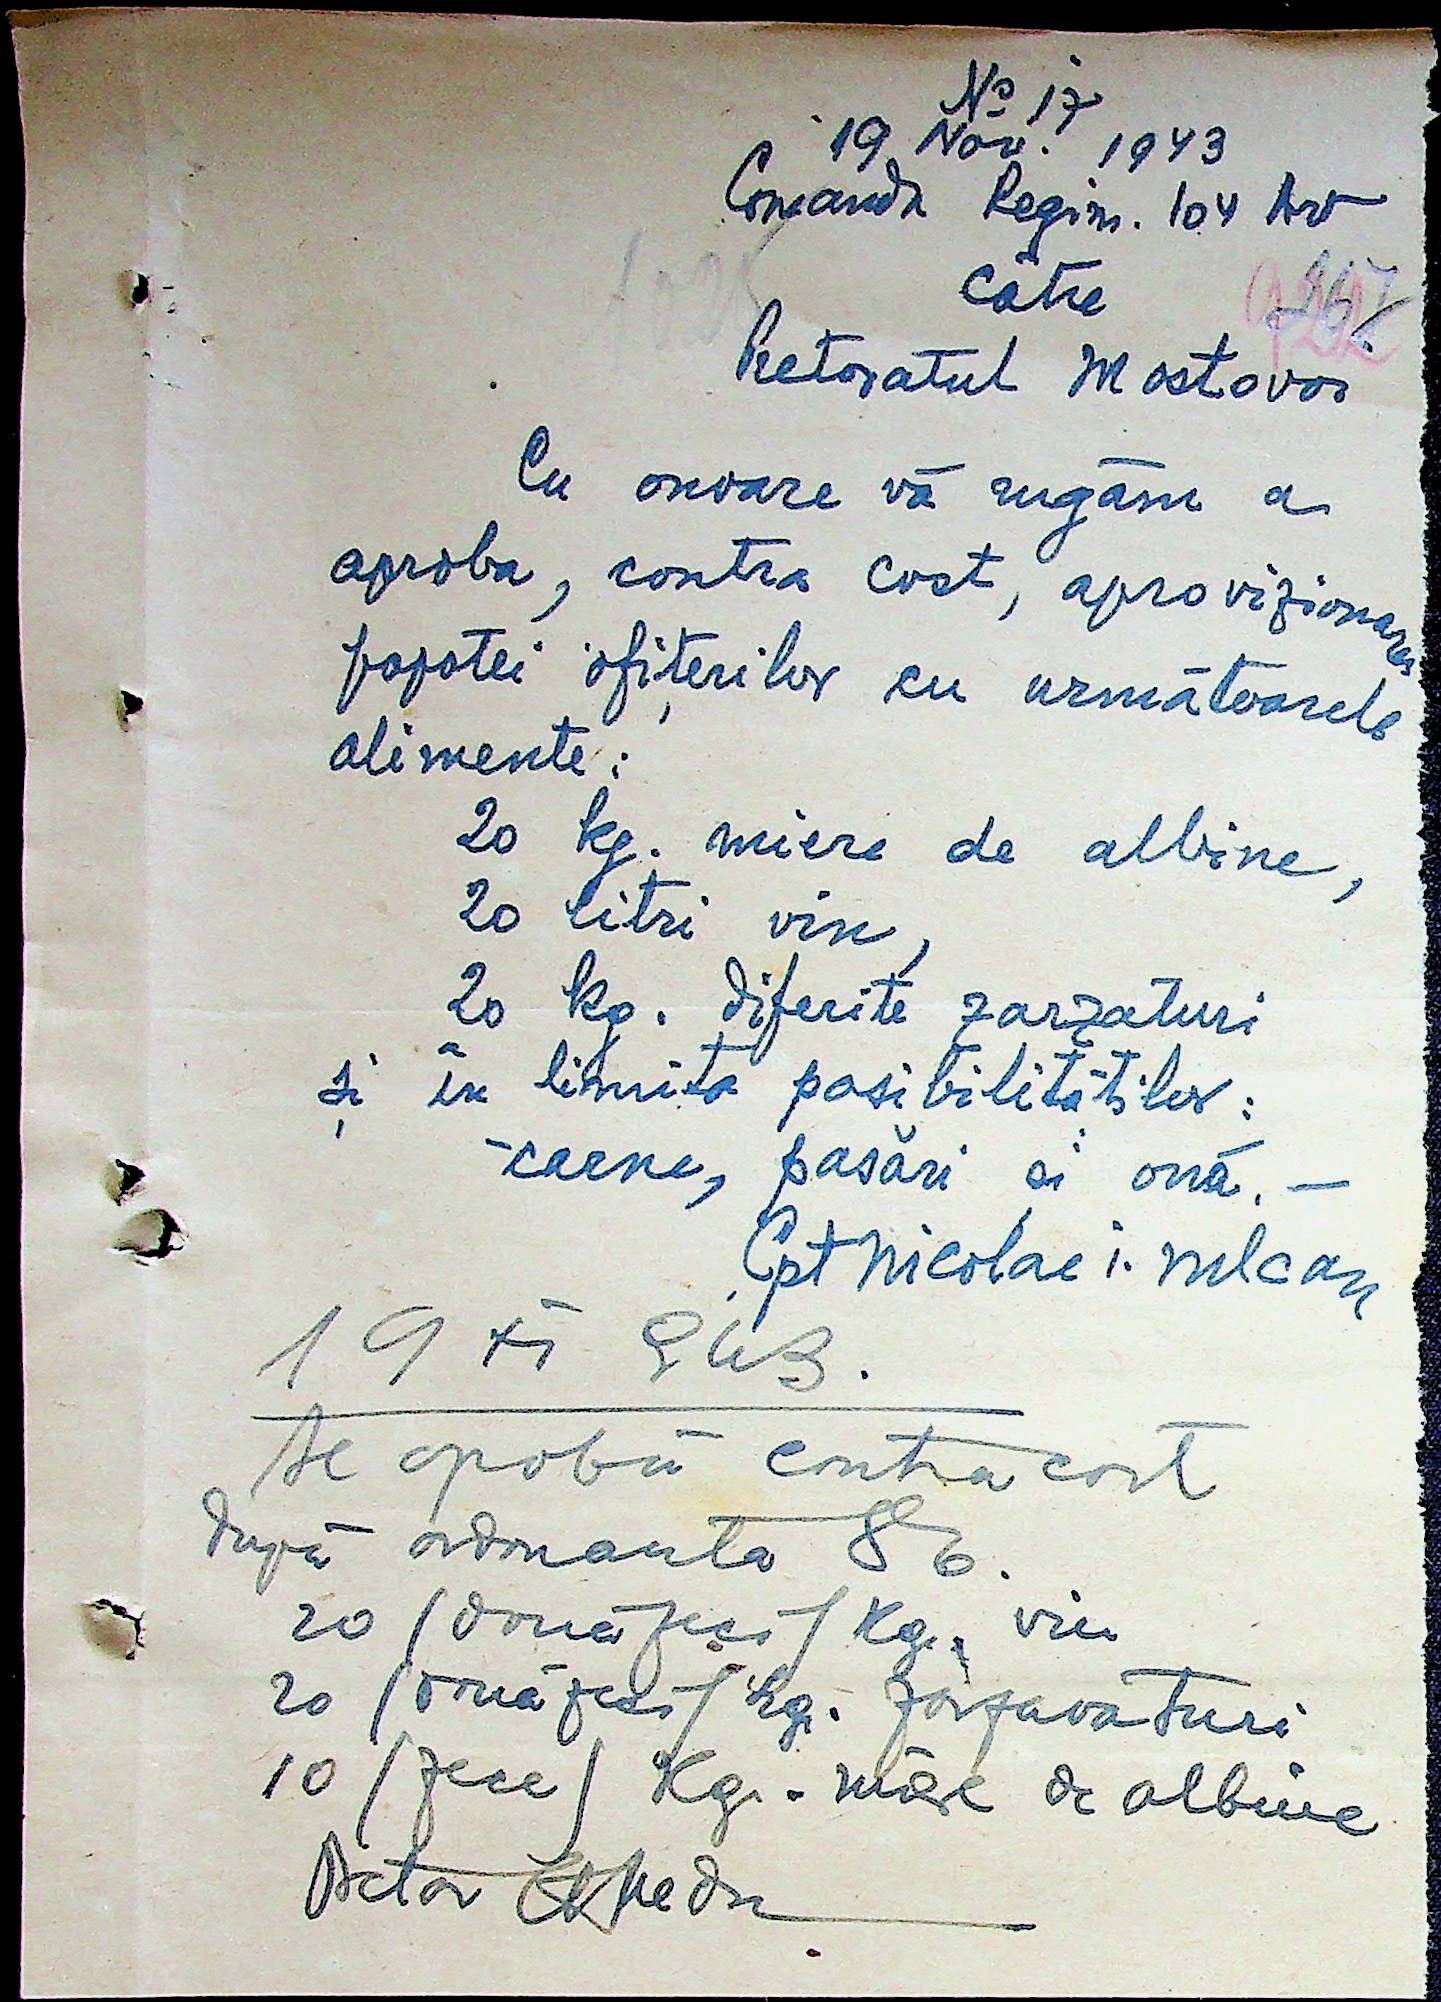 No 17
19 Nov. 1943
Comanda Regim. 104 Art
Către
Pretoratul Mostovoi
Cu onoare vă rugăm a
aproba, contra cost, aprovizionarea
popotei ofițerilor cu următoarele
alimente:
20 kg. miere de albine,
20 litri vin,
20 kg. diferite zarzaturi
și în limita posibilităților:
-carne, pasări și ouă. —
Cpt Nicolae i. Vulcan
19 XI 943.
Se aprobă contra cost
după ordonanta 86.
20 (douăzeci) Kg. vin
20 (douăzeci) kg. zarzavaturi
10 (zece) Kg. miere de albine
Pretor